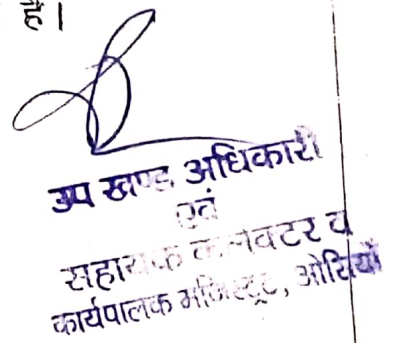 है।
उप खण्ड अधिकारी
एवं
सहायक कलक्टर व
कार्यपालक मजिस्ट्रेट, ओसियाँ